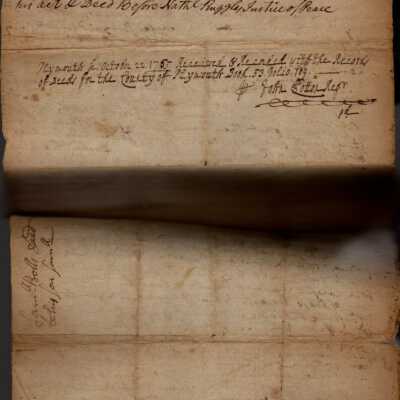 his act & Deed Before Nathl Justice of Peace
Plymouth ss October 22. 1755 Received & Recorded with the Records
of Deeds for the County of Plymouth Book. 53 Folio. 109.
John Cotton Regr
Saml Deed